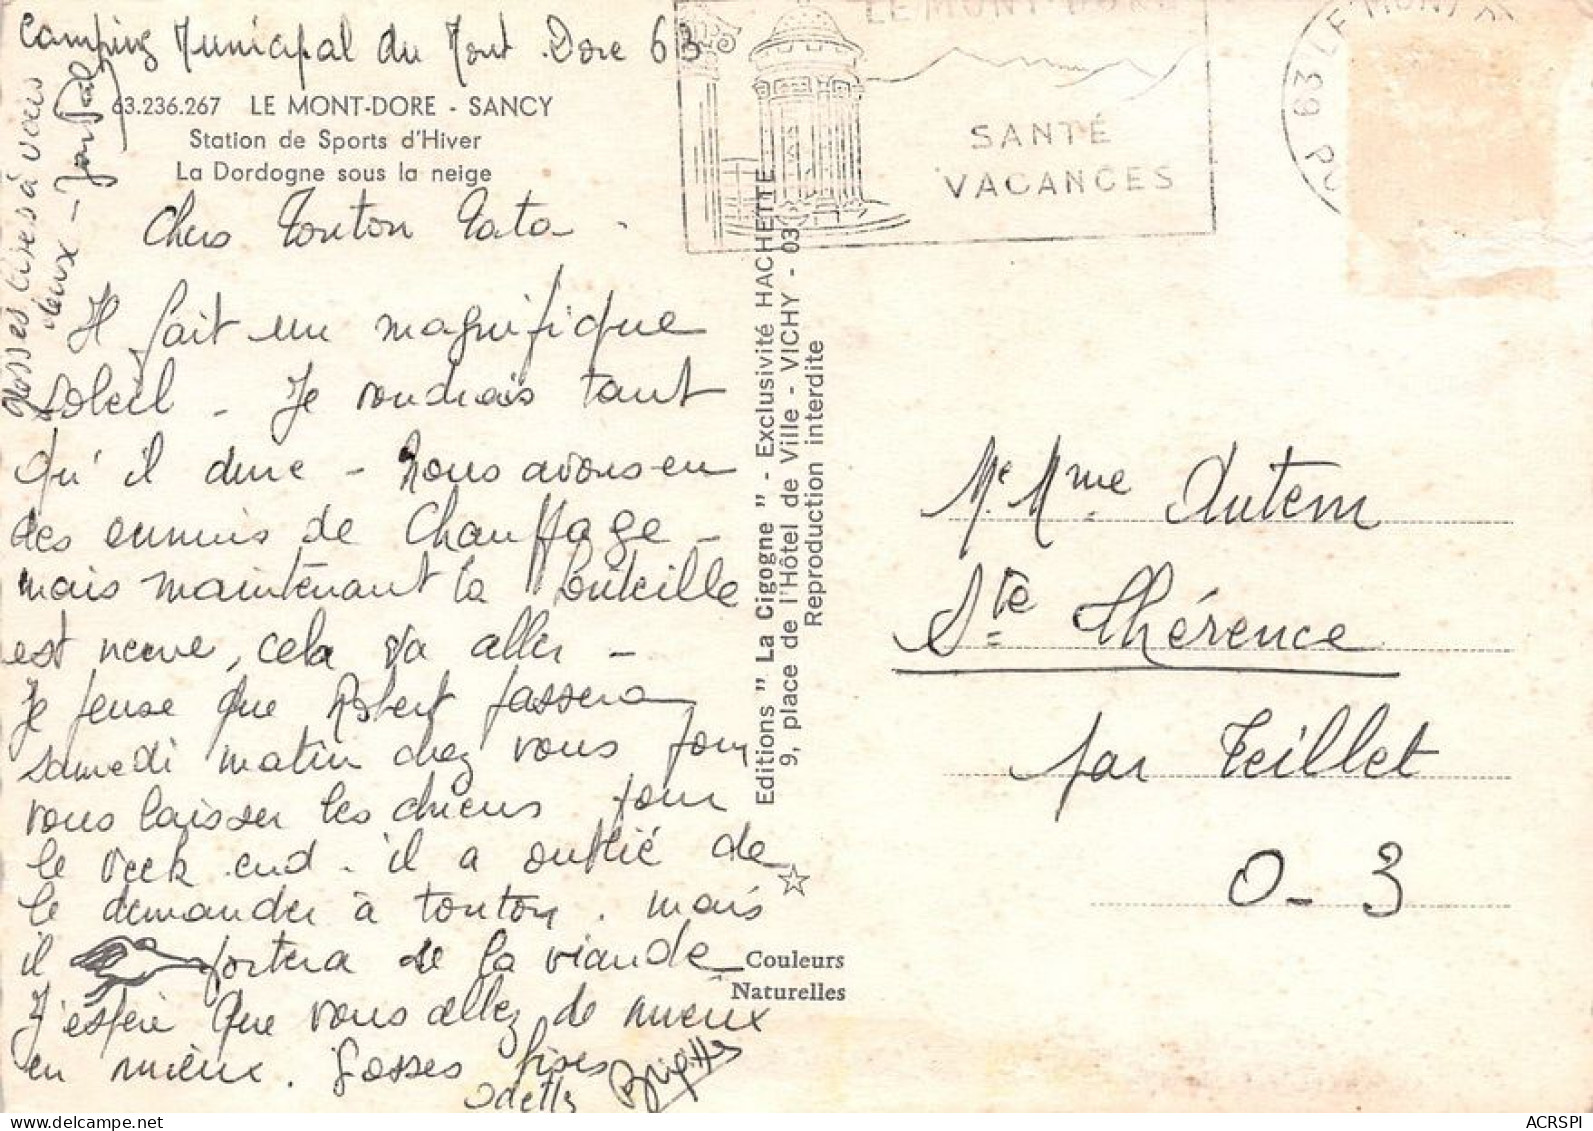 Camping Municipal du Mont-Dore 63
63.236.267 LE MONT-DORE - SANCY
Station de Sports d'Hiver
La Dordogne sous la neige
Chers Tonton Tata -
Il fait un magnifique
soleil - Je voudrais tant
qu'il dure - nous avons eu
des ennuis de chauffage -
mais maintenant la bouteille
est neuve, cela va aller -
Je pense que Robert passera
samedi matin chez vous pour
vous laisser les chiens pour
le week end - il a oublié de
le demander à tonton. mais
il portera de la viande
J'espère que vous allez de mieux
en mieux. Gosses bises
Odette Brigitte
Grosses bises à vous
deux -
LE MONT-DORE
SANTÉ
VACANCES
LE MONT-D
39 PU
Editions " La Cigogne " - Exclusivité HACHETTE
9, place de l'Hôtel de Ville - VICHY - 03
Reproduction interdite
Couleurs
Naturelles
Mr Mme Autem
Ste Thérence
par Teillet
0-3
delcampe.net
ACRSPI